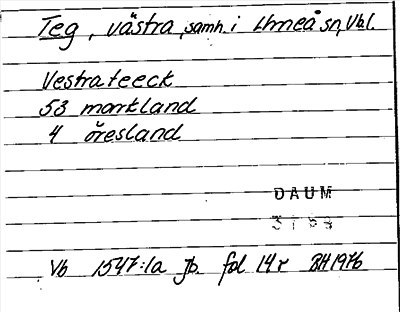 Teg, västra, samh. i Umeå sn, Vbl.
Vestrateeck
53 markland
4 öresland
DAUM
Vb 1547:1a Jb. fol 14r BH 1976